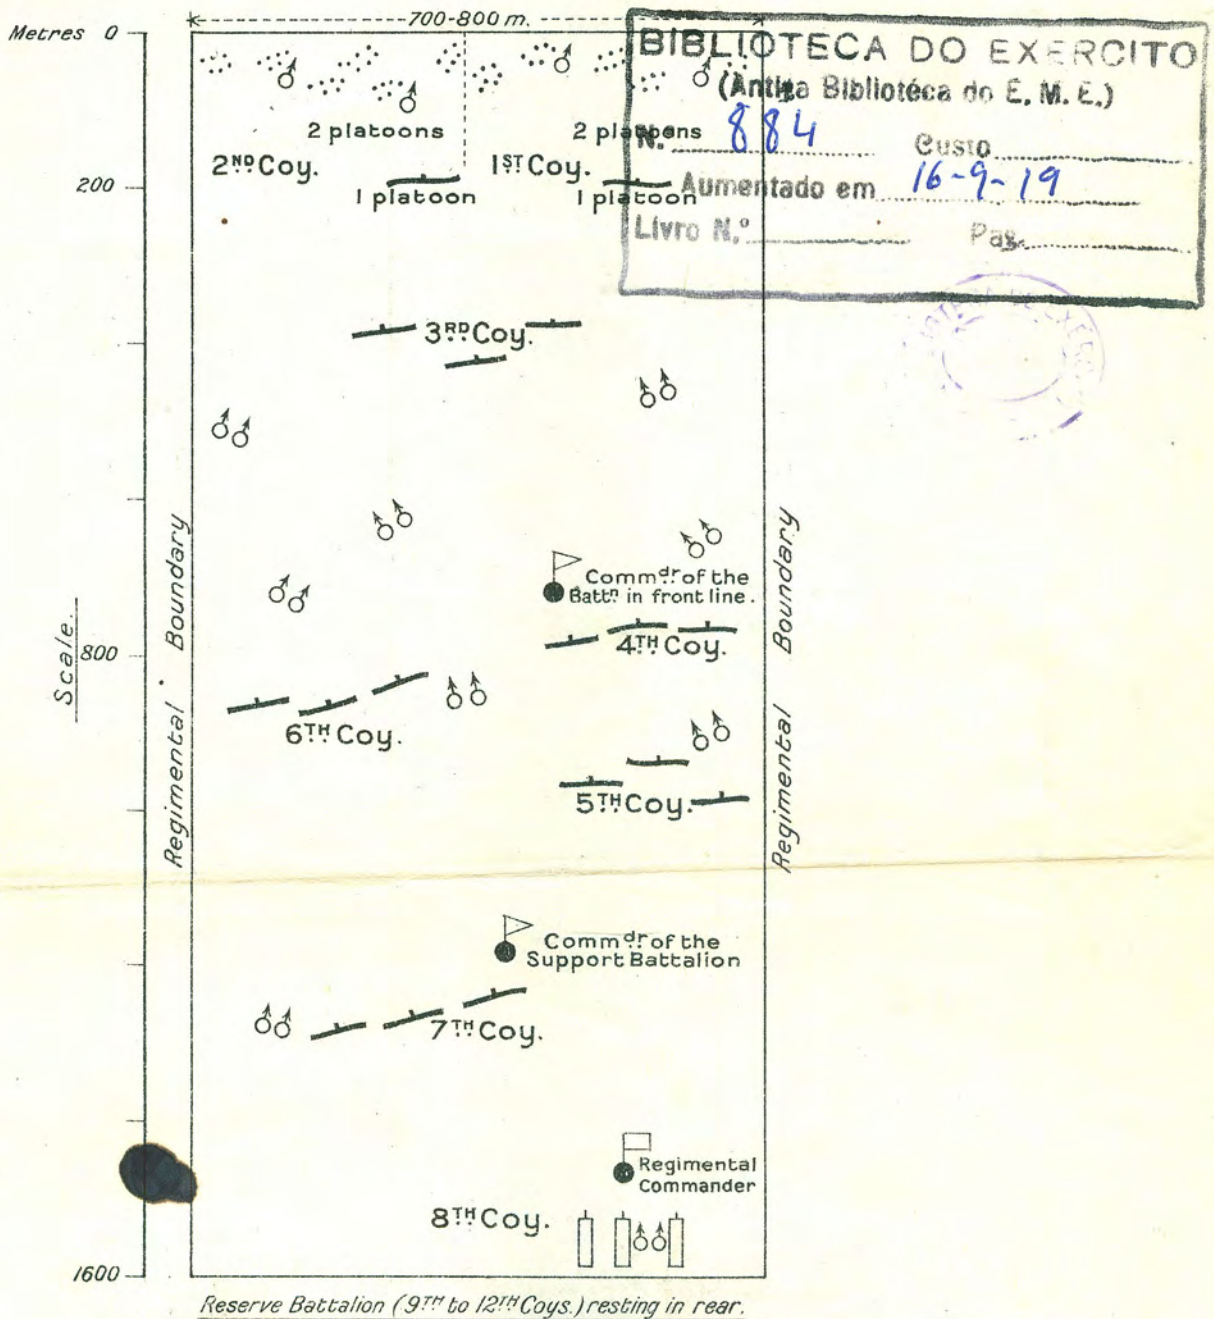 700-800 m.
Metres 0
BIBLIOTECA DO EXERCITO
(Antiga Bibliotéca do E. M. E.)
N.º 884 Custo
Aumentado em 16-9-19
Livro N.º Pag.
2 platoons
2 platoons
2ND Coy.
1ST Coy.
200
1 platoon
1 platoon
3RD Coy.
Regimental Boundary
Regimental Boundary
Scale.
Commdr. of the
Battn. in front line.
4TH Coy.
800
6TH Coy.
5TH Coy.
Commdr. of the
Support Battalion
7TH Coy.
Regimental
Commander
8TH Coy.
1600
Reserve Battalion (9TH to 12TH Coys.) resting in rear.